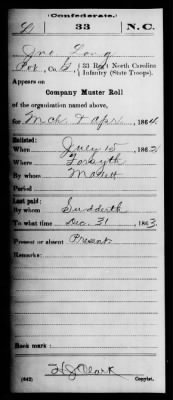 (Confederate.)
L 33 N.C.
Jno Long
Pvt, Co. G, 33 Reg't North Carolina
Infantry (State Troops).
Appears on
Company Muster Roll
of the organization named above,
for Mch & Apr, 1864.
Enlisted:
When July 15, 1862
Where Forsyth
By whom
Period
Last paid:
By whom Sudderth
To what time Dec. 31, 1863
Present or absent Present
Remarks:
Book mark:
(642) H J Clark Copyist.